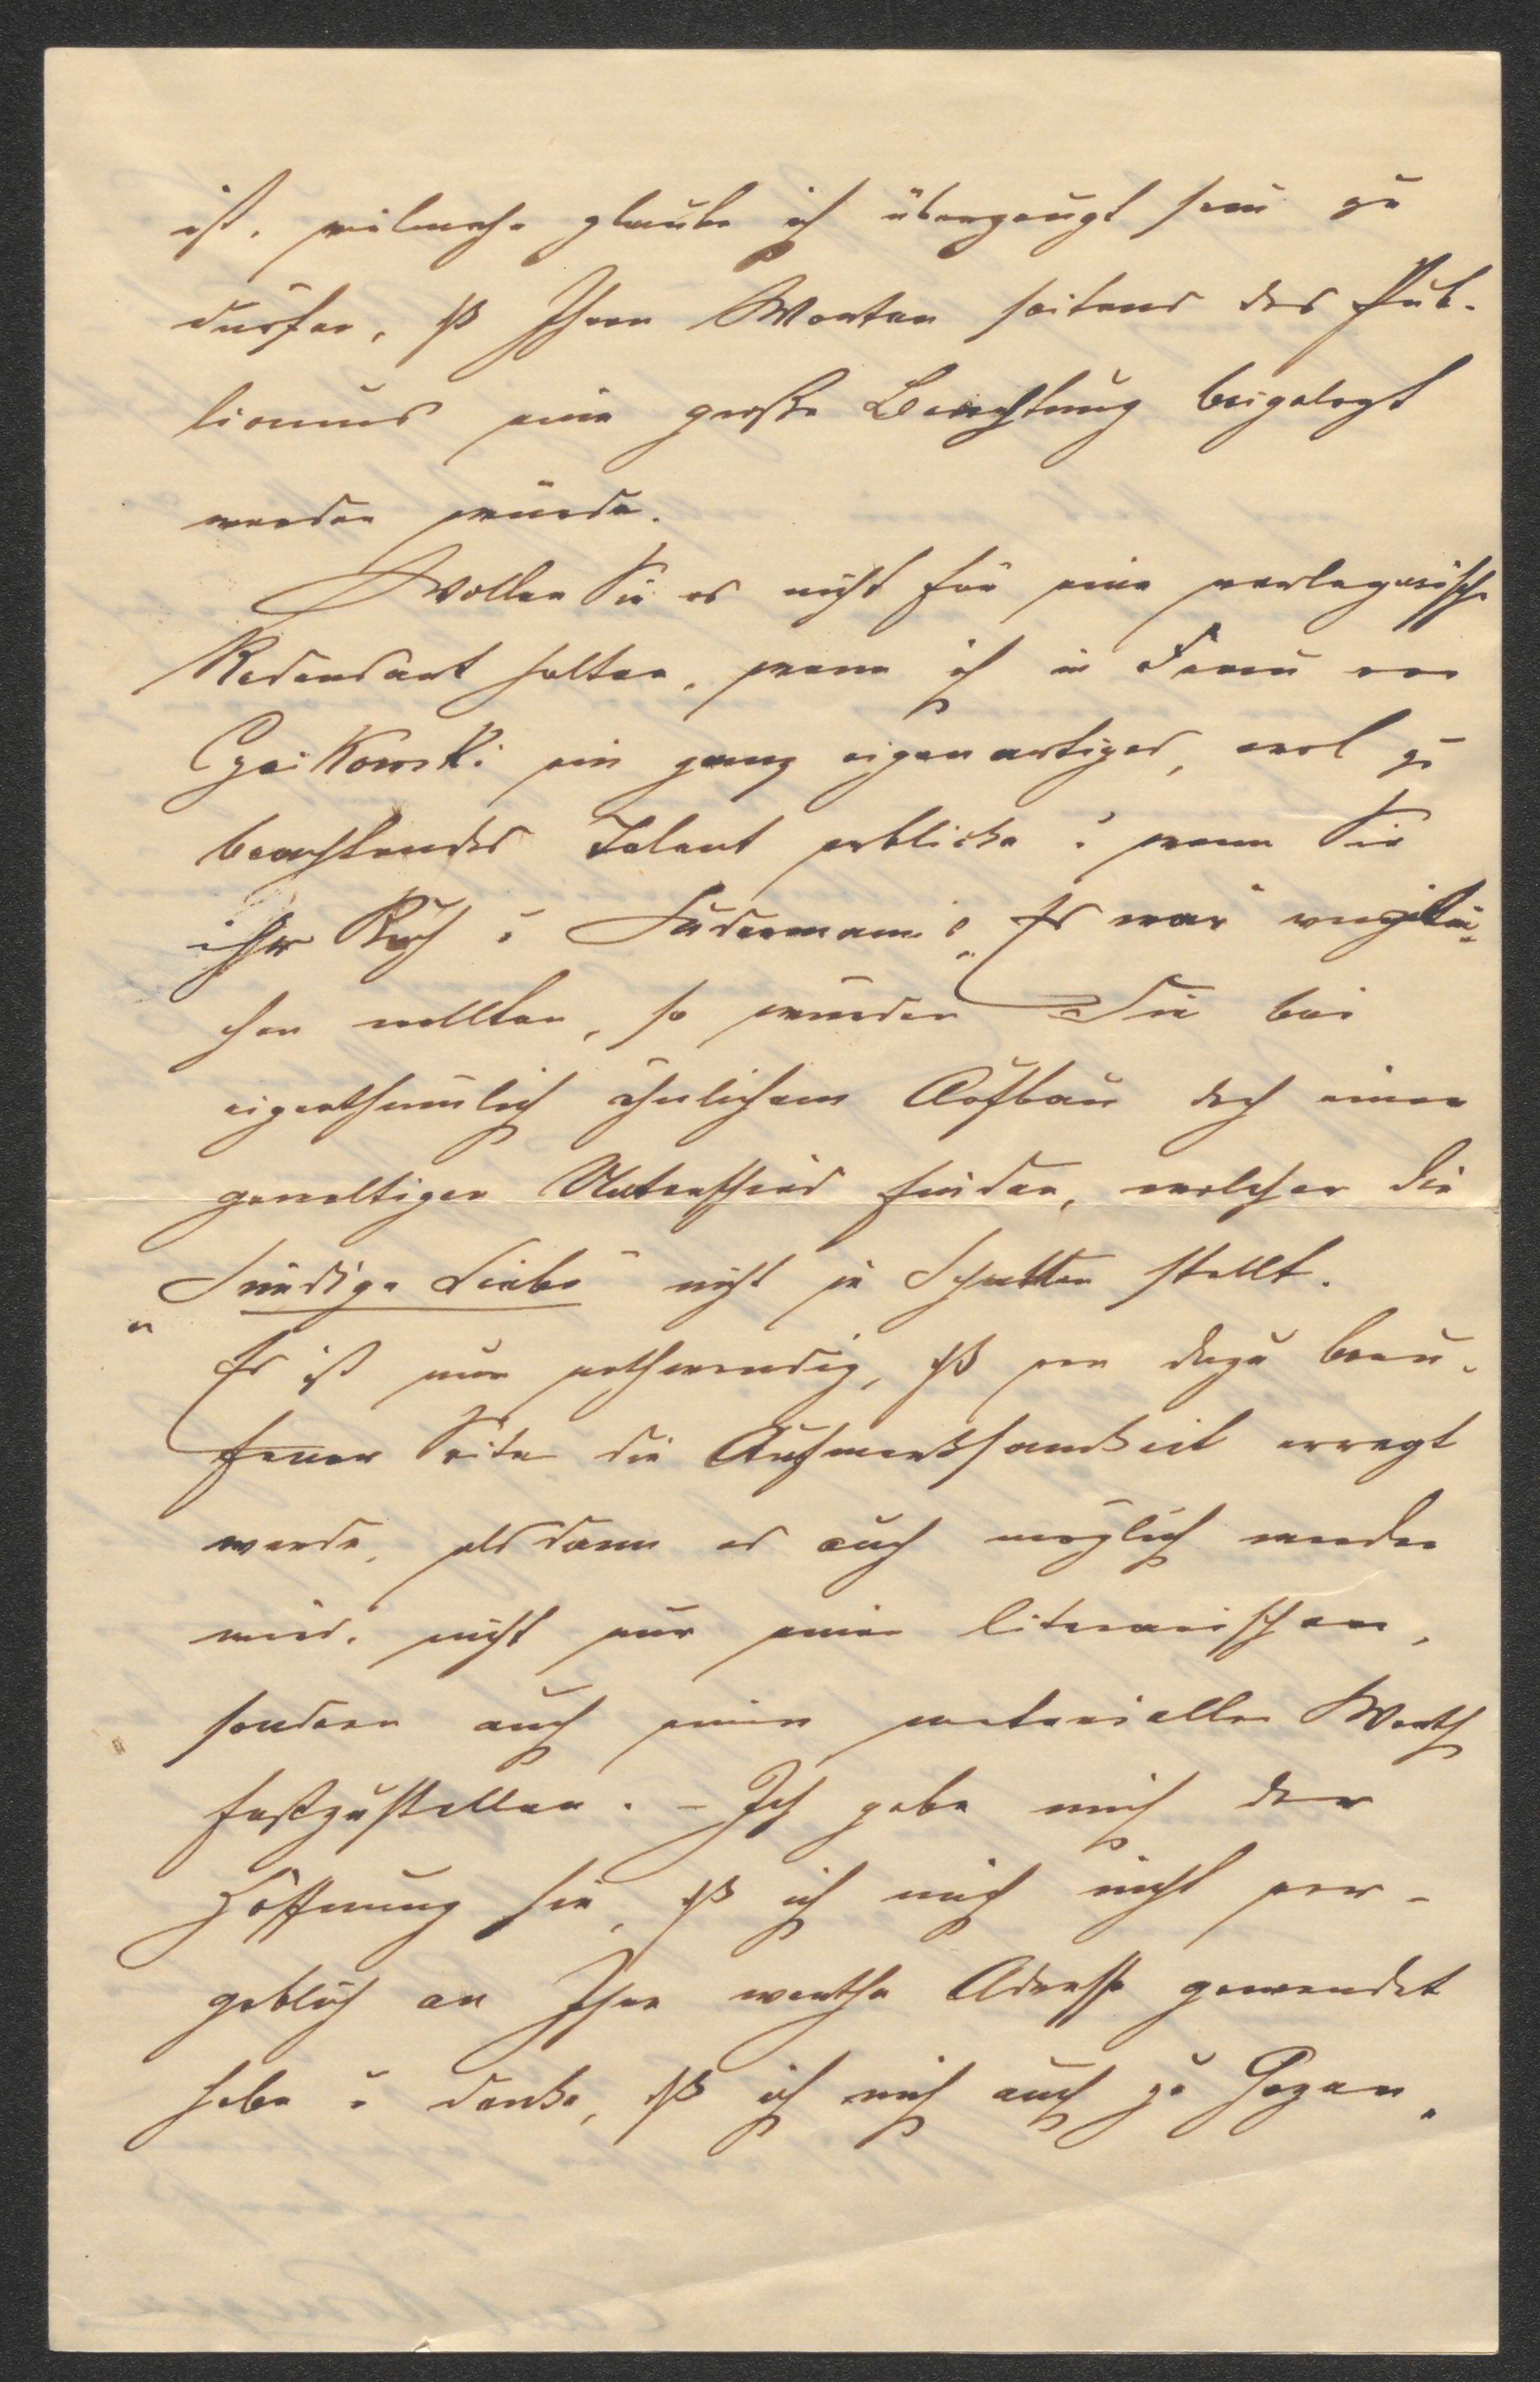 ist, vielmehr glaube ich überzeugt sein zu
dürfen, dß Ihren Worten seitens des Pub-
licums eine große Beachtung beigelegt
werden würde.
Wollen Sie es nicht für eine verlegerische
Redensart halten, wenn ich in Frau von
Czaikowski ein ganz eigenartiges, wol zu
beachtendes Talent erblicke u. wenn Sie
ihr Buch u. Sudermann's „Es war" verglei-
chen wollten, so würden Sie bei
eigenthümlich ähnlichem Aufbau doch einen
gewaltigen Unterschied finden, welcher die
„Sündige Liebe" nicht in Schatten stellt.
Es ist nur nothwendig, dß von dazu beru-
fener Seite die Aufmerksamkeit erregt
werde, alsdann es auch möglich werden
wird, nicht nur einen literarischen,
sondern auch einen materiellen Werth
festzustellen. – Ich gebe mich der
Hoffnung hin, dß ich mich nicht ver-
geblich an Ihre werthe Adresse gewendet
habe u. danke, dß ich mich auch zu Gegen-